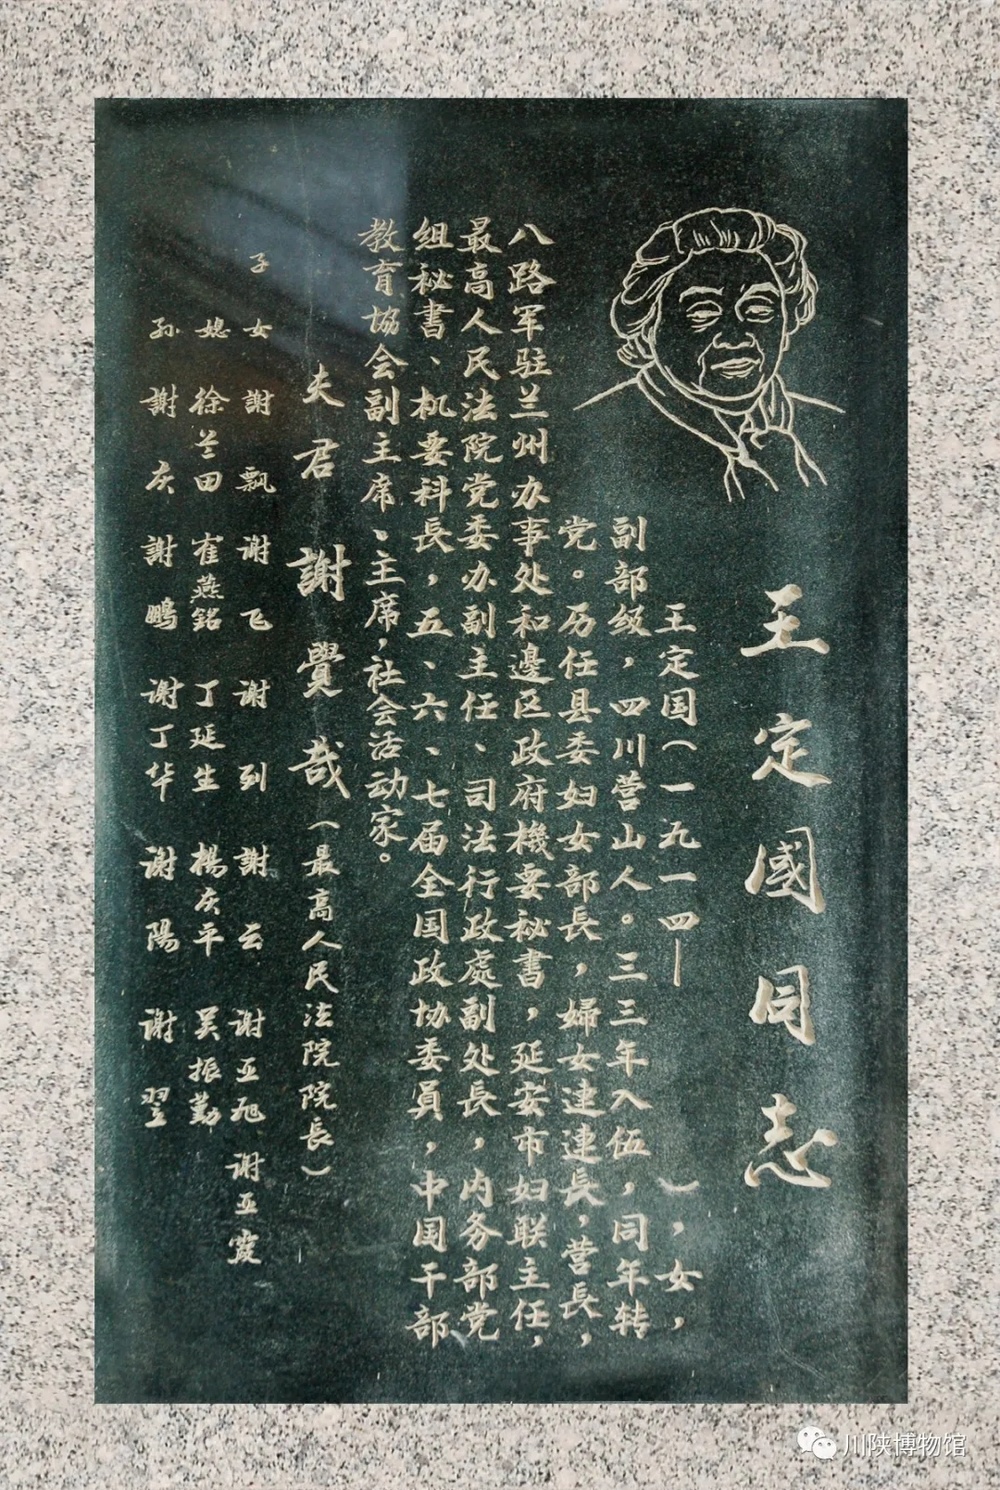 王定國同志
王定国(一九一四— ),女,
副部级,四川营山人。三三年入伍,同年转
党。历任县委妇女部長,婦女連連長,营長,
八路军驻兰州办事处和邊区政府機要秘書,延安市妇联主任,
最高人民法院党委办副主任、司法行政處副处長,内务部党
组秘書、机要科長,五、六、七届全国政协委員,中国干部
教育协会副主席、主席,社会活动家。
夫君 謝覺哉(最高人民法院院長)
子女 謝飘 谢飞 谢列 謝云 谢亚旭 谢亚
媳 徐兰田 崔燕銘 丁延生 楊庆平 吴振勤
孙 謝庆 謝鵬 谢丁华 谢陽 谢翌
川陕博物馆